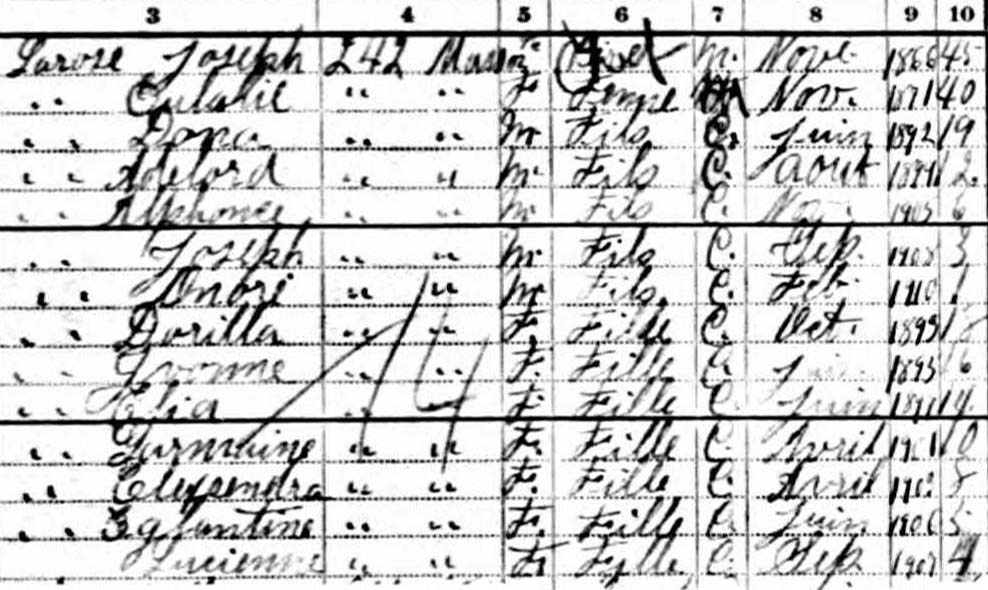 3 4 5 6 7 8 9 10
Larose Joseph 242 M. Nove 1866 45
" " Eulalie " " F. Femme M Nov. 1871 40
" " Dona " " M. Fils C. Juin 1892 19
" " Adelord " " M. Fils C. Aout
" " Alphonse " " M. Fils C. Nov. 1905 6
" " Joseph " " M. Fils C. Sep. 1908 3
" " Onore " " M. Fils C. Feb. 1910 1
" " Dorilla " " F. Fille C. Oct. 1893
" " Yvonne " " F. Fille C. 1895 16
" " Elia " " F. Fille C. Juin
" " Germaine " " F. Fille C. Avril 1901 10
" " Elexsendra " " F. Fille C. Avril 1903 8
" " Eglantine " " F. Fille C. Juin 1906 5
Lucienne " " F. Fille C. Sep. 1907 4